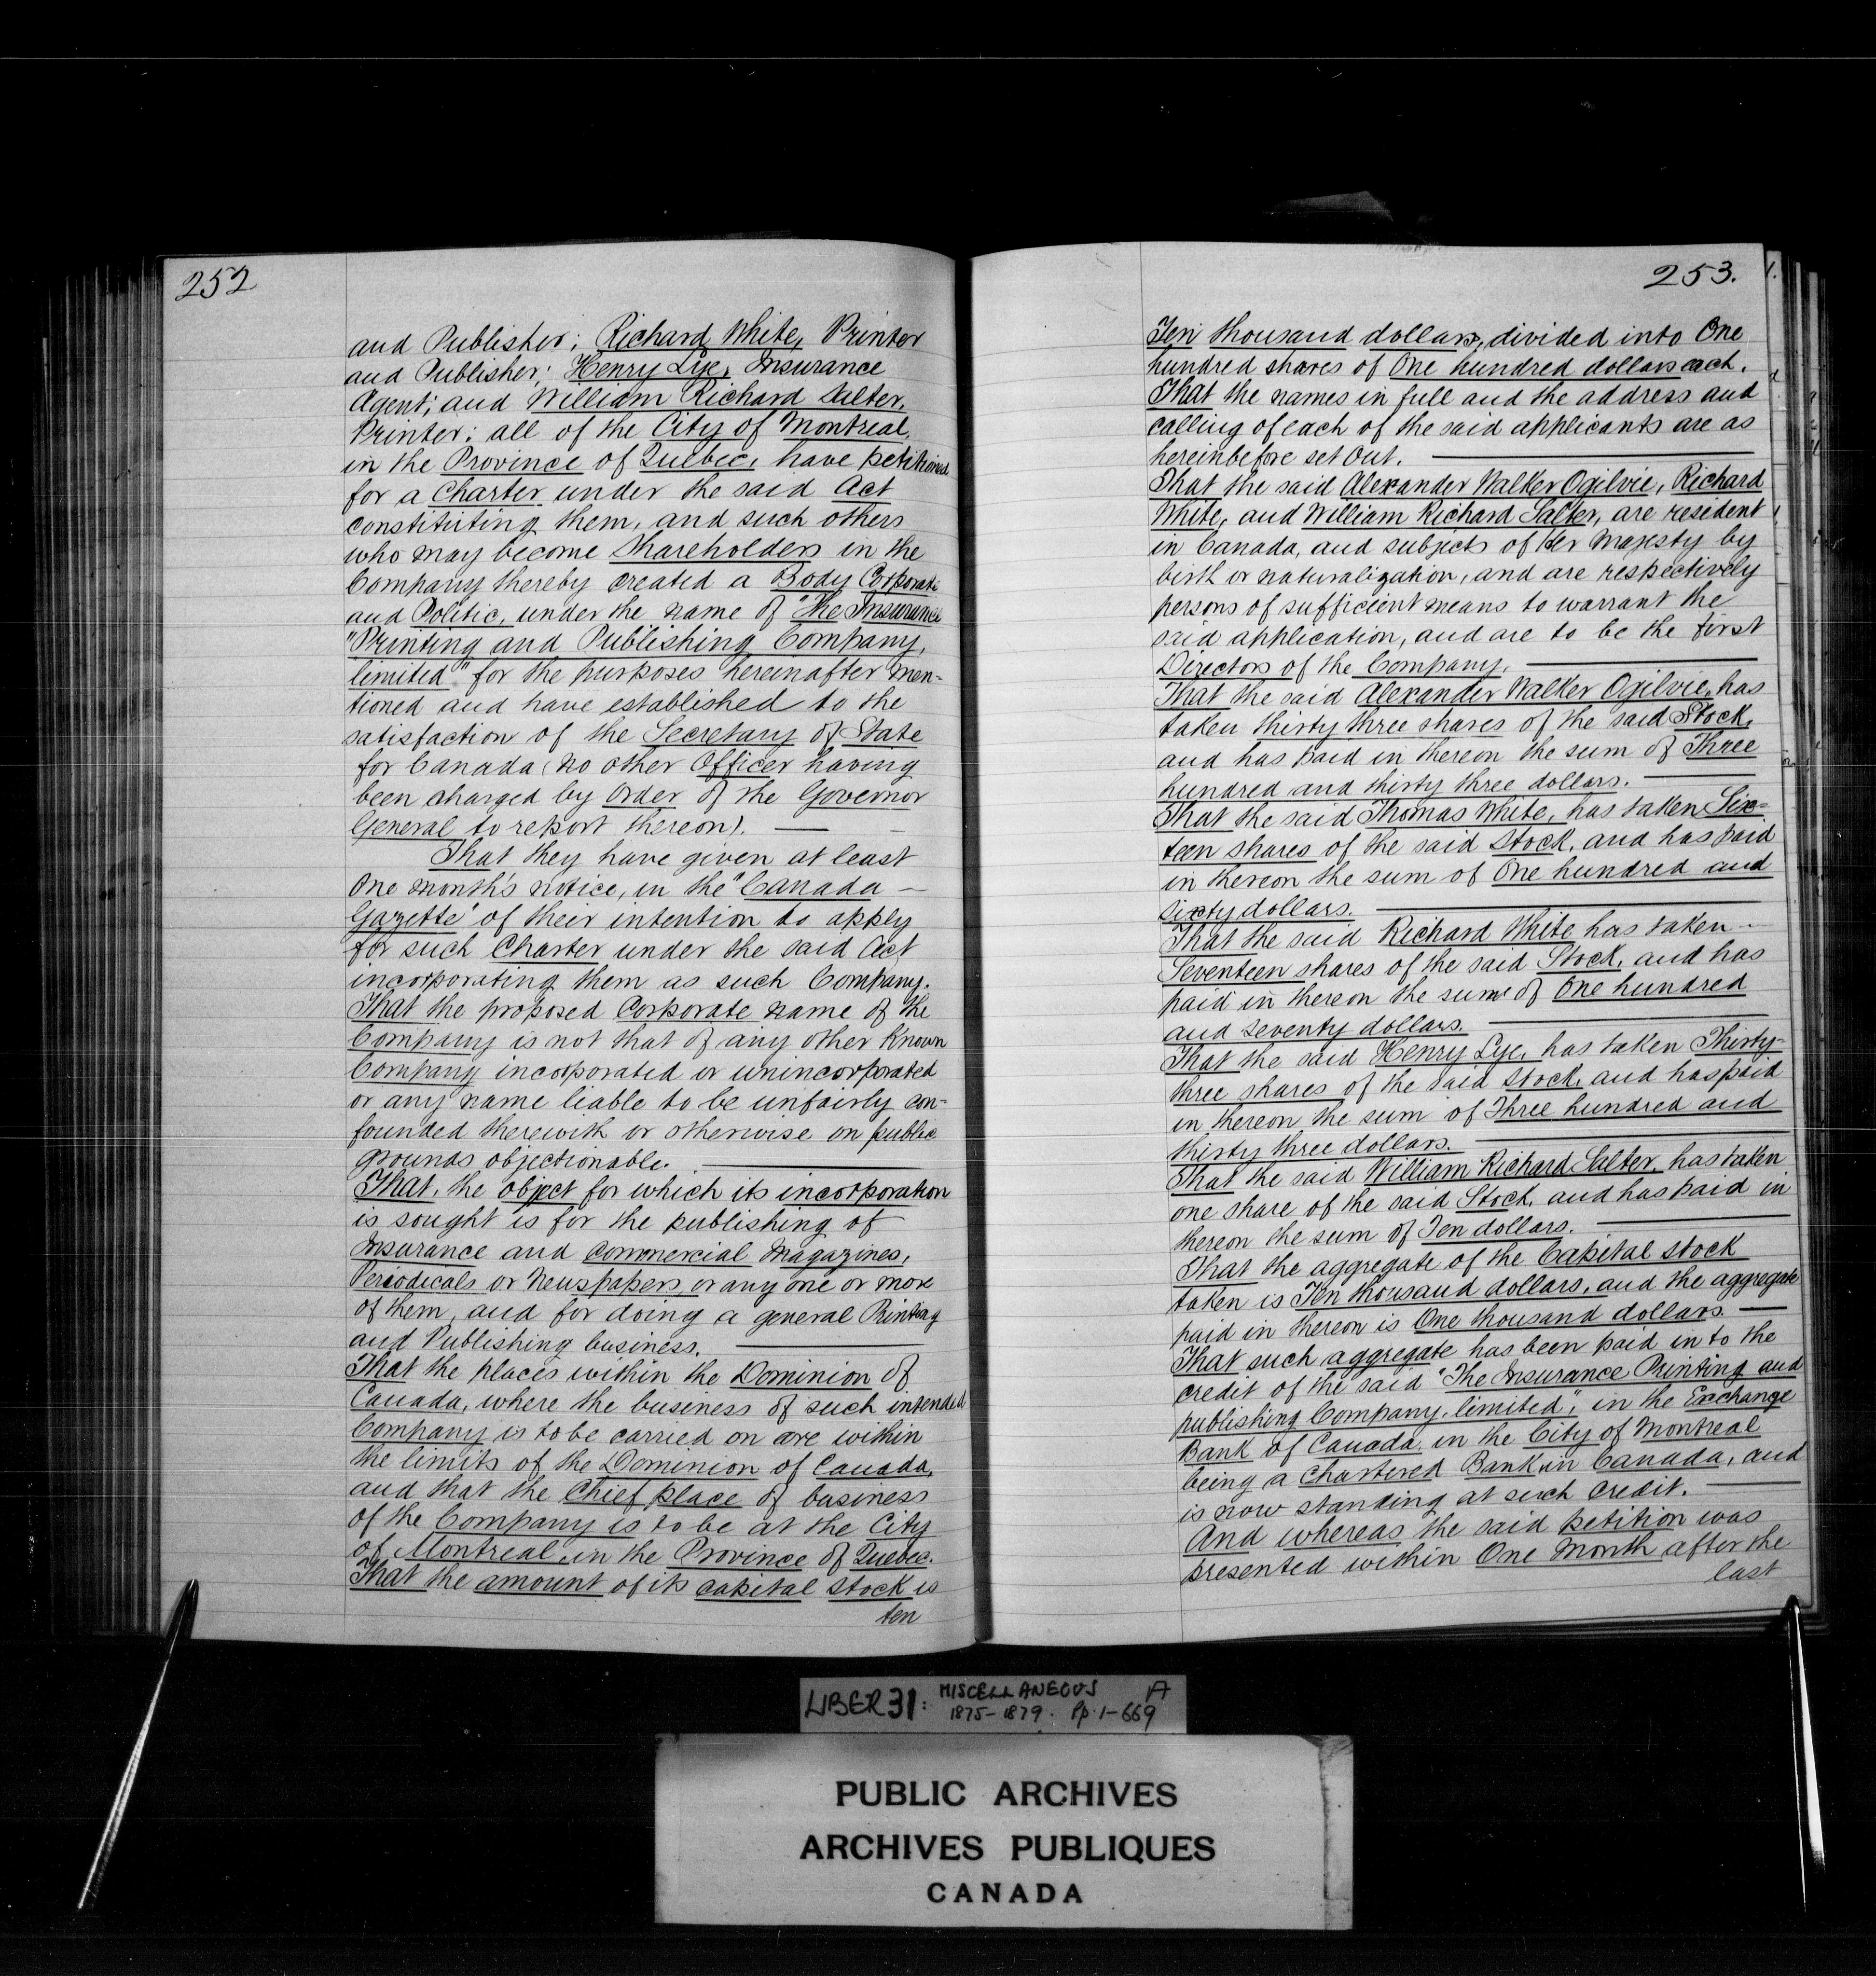 252
and Publisher; Richard White, Printer
and Publisher; Henry Lye, Insurance
Agent; and William Richard Salter,
Printer; all of the City of Montreal,
in the Province of Quebec, have petitioned
for a Charter under the said Act
constituting them, and such others
who may become Shareholders in the
Company thereby created a Body Corporate
and Politic, under the name of "The Insurance
"Printing and Publishing Company,
limited" for the purposes hereinafter men-
tioned and have established to the
satisfaction of the Secretary of State
for Canada (no other Officer having
been charged by Order of the Governor
General to report thereon).
That they have given at least
One month's notice, in the "Canada
Gazette" of their intention to apply
for such Charter under the said Act
incorporating them as such Company.
That the proposed Corporate name of the
Company is not that of any other Known
Company incorporated or unincorporated
or any name liable to be unfairly con-
founded therewith or otherwise on public
grounds objectionable.
That, the object for which its incorporation
is sought is for the publishing of
Insurance and Commercial Magazines,
Periodicals or Newspapers, or any one or more
of them, and for doing a general Printing
and Publishing business.
That the places within the Dominion of
Canada, where the business of such intended
Company is to be carried on are within
the limits of the Dominion of Canada,
and that the Chief place of business
of the Company is to be at the City
of Montreal, in the Province of Quebec.
That the amount of its capital stock is
ten
253.
Ten thousand dollars, divided into One
hundred shares of One hundred dollars each.
That the names in full and the address and
calling of each of the said applicants are as
hereinbefore set out.
That the said Alexander Walker Ogilvie, Richard
White, and William Richard Salter, are resident
in Canada, and subjects of Her Majesty by
birth or naturalization, and are respectively
persons of sufficient means to warrant the
said application, and are to be the first
Directors of the Company.
That the said Alexander Walker Ogilvie, has
taken thirty three shares of the said Stock,
and has paid in thereon the sum of Three
hundred and thirty three dollars.
That the said Thomas White, has taken Six-
teen shares of the said Stock, and has paid
in thereon the sum of One hundred and
sixty dollars.
That the said Richard White has taken
Seventeen shares of the said Stock, and has
paid in thereon the sum of One hundred
and seventy dollars.
That the said Henry Lye, has taken Thirty-
three shares of the said Stock, and has paid
in thereon the sum of Three hundred and
thirty three dollars.
That the said William Richard Salter, has taken
one share of the said Stock, and has paid in
thereon the sum of Ten dollars.
That the aggregate of the Capital stock
taken is Ten thousand dollars, and the aggregate
paid in thereon is One thousand dollars.
That such aggregate has been paid in to the
credit of the said "The Insurance Printing and
publishing Company, limited", in the Exchange
Bank of Canada, in the City of Montreal
being a Chartered Bank in Canada, and
is now standing at such credit.
And whereas the said petition was
presented within One Month after the
last
LIBER 31: MISCELLANEOUS A
1875-1879. Pp. 1-669
PUBLIC ARCHIVES
ARCHIVES PUBLIQUES
CANADA